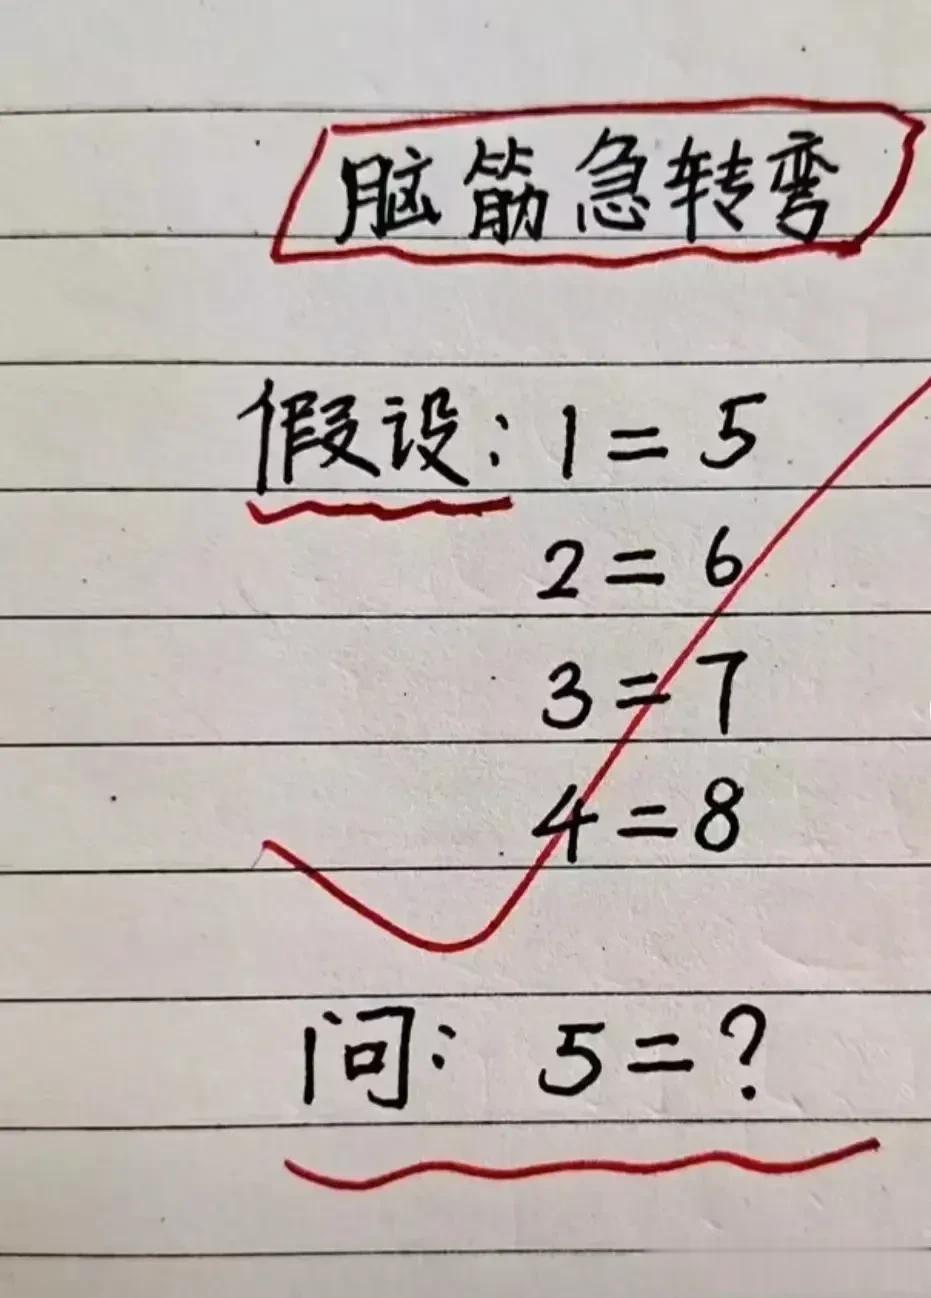 脑筋急转弯
假设：1=5
2=6
3=7
4=8
问：5=?